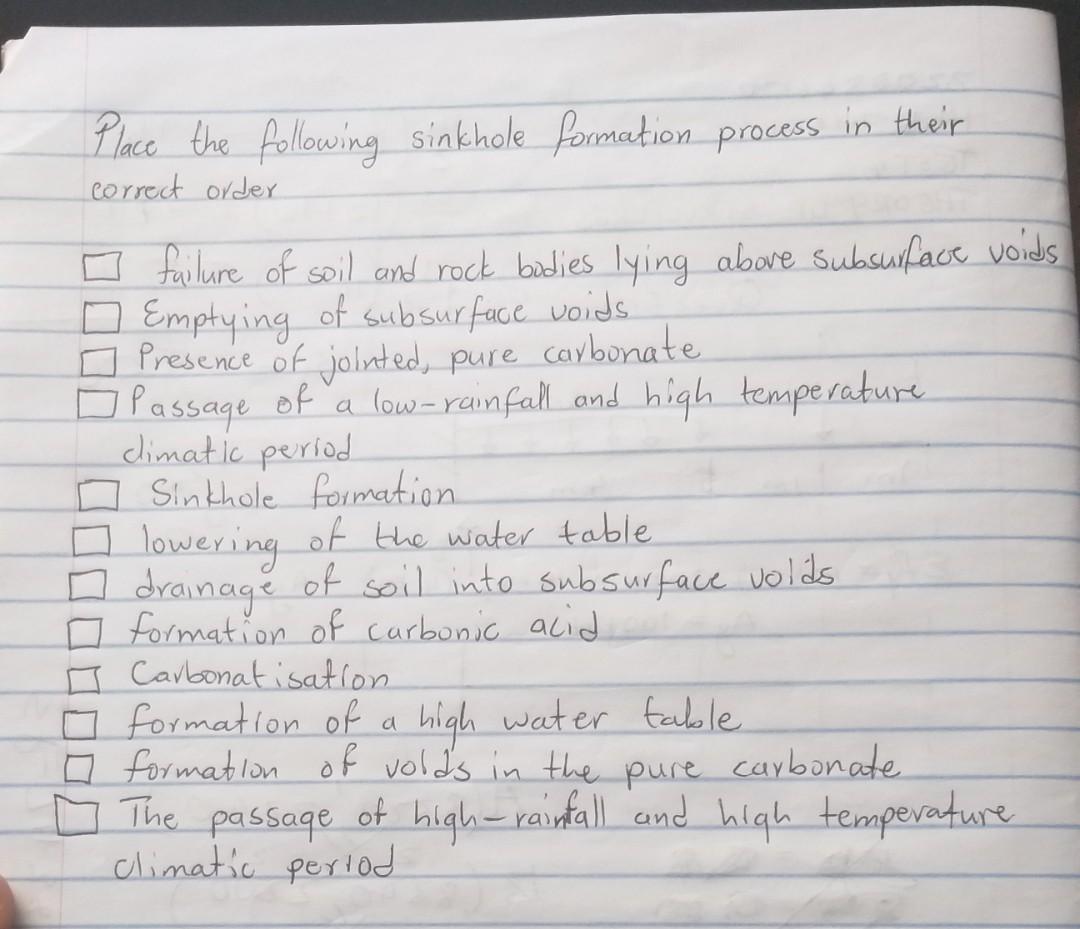 Place the following sinkhole formation process in their
correct order
failure of soil and rock bodies lying above subsurface voids
Emptying of subsurface voids
Presence of jointed, pure carbonate
Passage of a low-rainfall and high temperature
climatic period
Sinkhole formation
lowering of the water table
drainage of soil into subsurface voids
formation of carbonic acid
Carbonatisation
formation of a high water table
formation of voids in the pure carbonate
The passage of high-rainfall and high temperature
climatic period